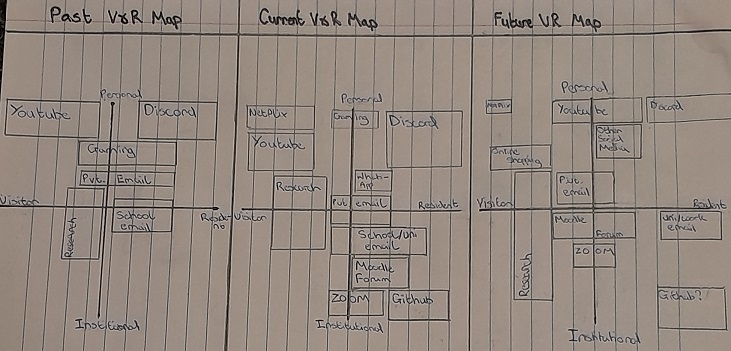 Past V&R Map
Personal
Youtube
Discord
Gaming
Pvt. Email
Visitor
School
email
Research
Institutional
Current V&R Map
Personal
Netflix
Gaming
Discord
Youtube
Whats-
App
Research
Pvt email
Resident
Visitor
School/Uni
email
Moodle
Forum
ZOOM
Github
Institutional
Future VR Map
Personal
Youtube
Discord
Other
Social
Media
Online
Shopping
Pvt.
email
Visitor
Resident
Moodle
Forum
Uni/work
email
ZOOM
Research
Github?
Institutional